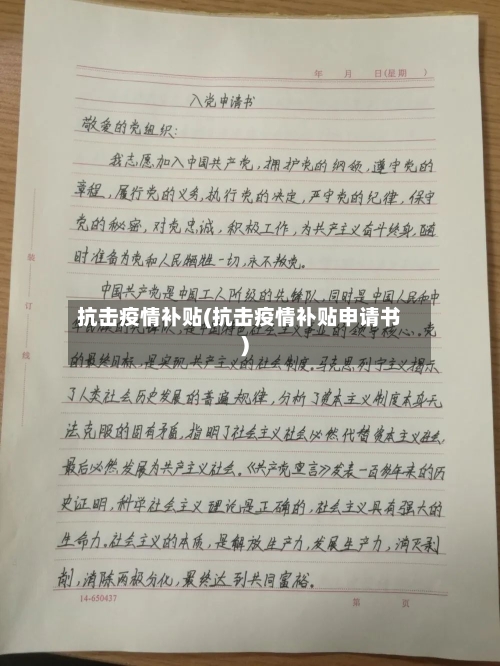 年 月 日(星期 )
入党申请书
敬爱的党组织:
我志愿加入中国共产党,拥护党的纲领,遵守党的
章程,履行党的义务,执行党的决定,严守党的纪律,保守
党的秘密,对党忠诚,积极工作,为共产主义奋斗终身,随
时准备为党和人民牺牲一切,永不叛党。
中国共产党是中国工人阶级的先锋队,同时是中国人民和中
抗击疫情补贴(抗击疫情补贴申请书
)
党
的最终目标,是实现共产主义的社会制度。马克思列宁主义揭示
了人类社会历史发展的普遍规律,分析了资本主义制度本身无
法克服的固有矛盾,指明了社会主义社会必然代替资本主义社会,
最后必然发展为共产主义社会。《共产党宣言》发表一百多年来的历
史证明,科学社会主义理论是正确的,社会主义具有强大的
生命力。社会主义的本质,是解放生产力,发展生产力,消灭剥
削,消除两极分化,最终达到共同富裕。
14-650437
第 页
装
订
线